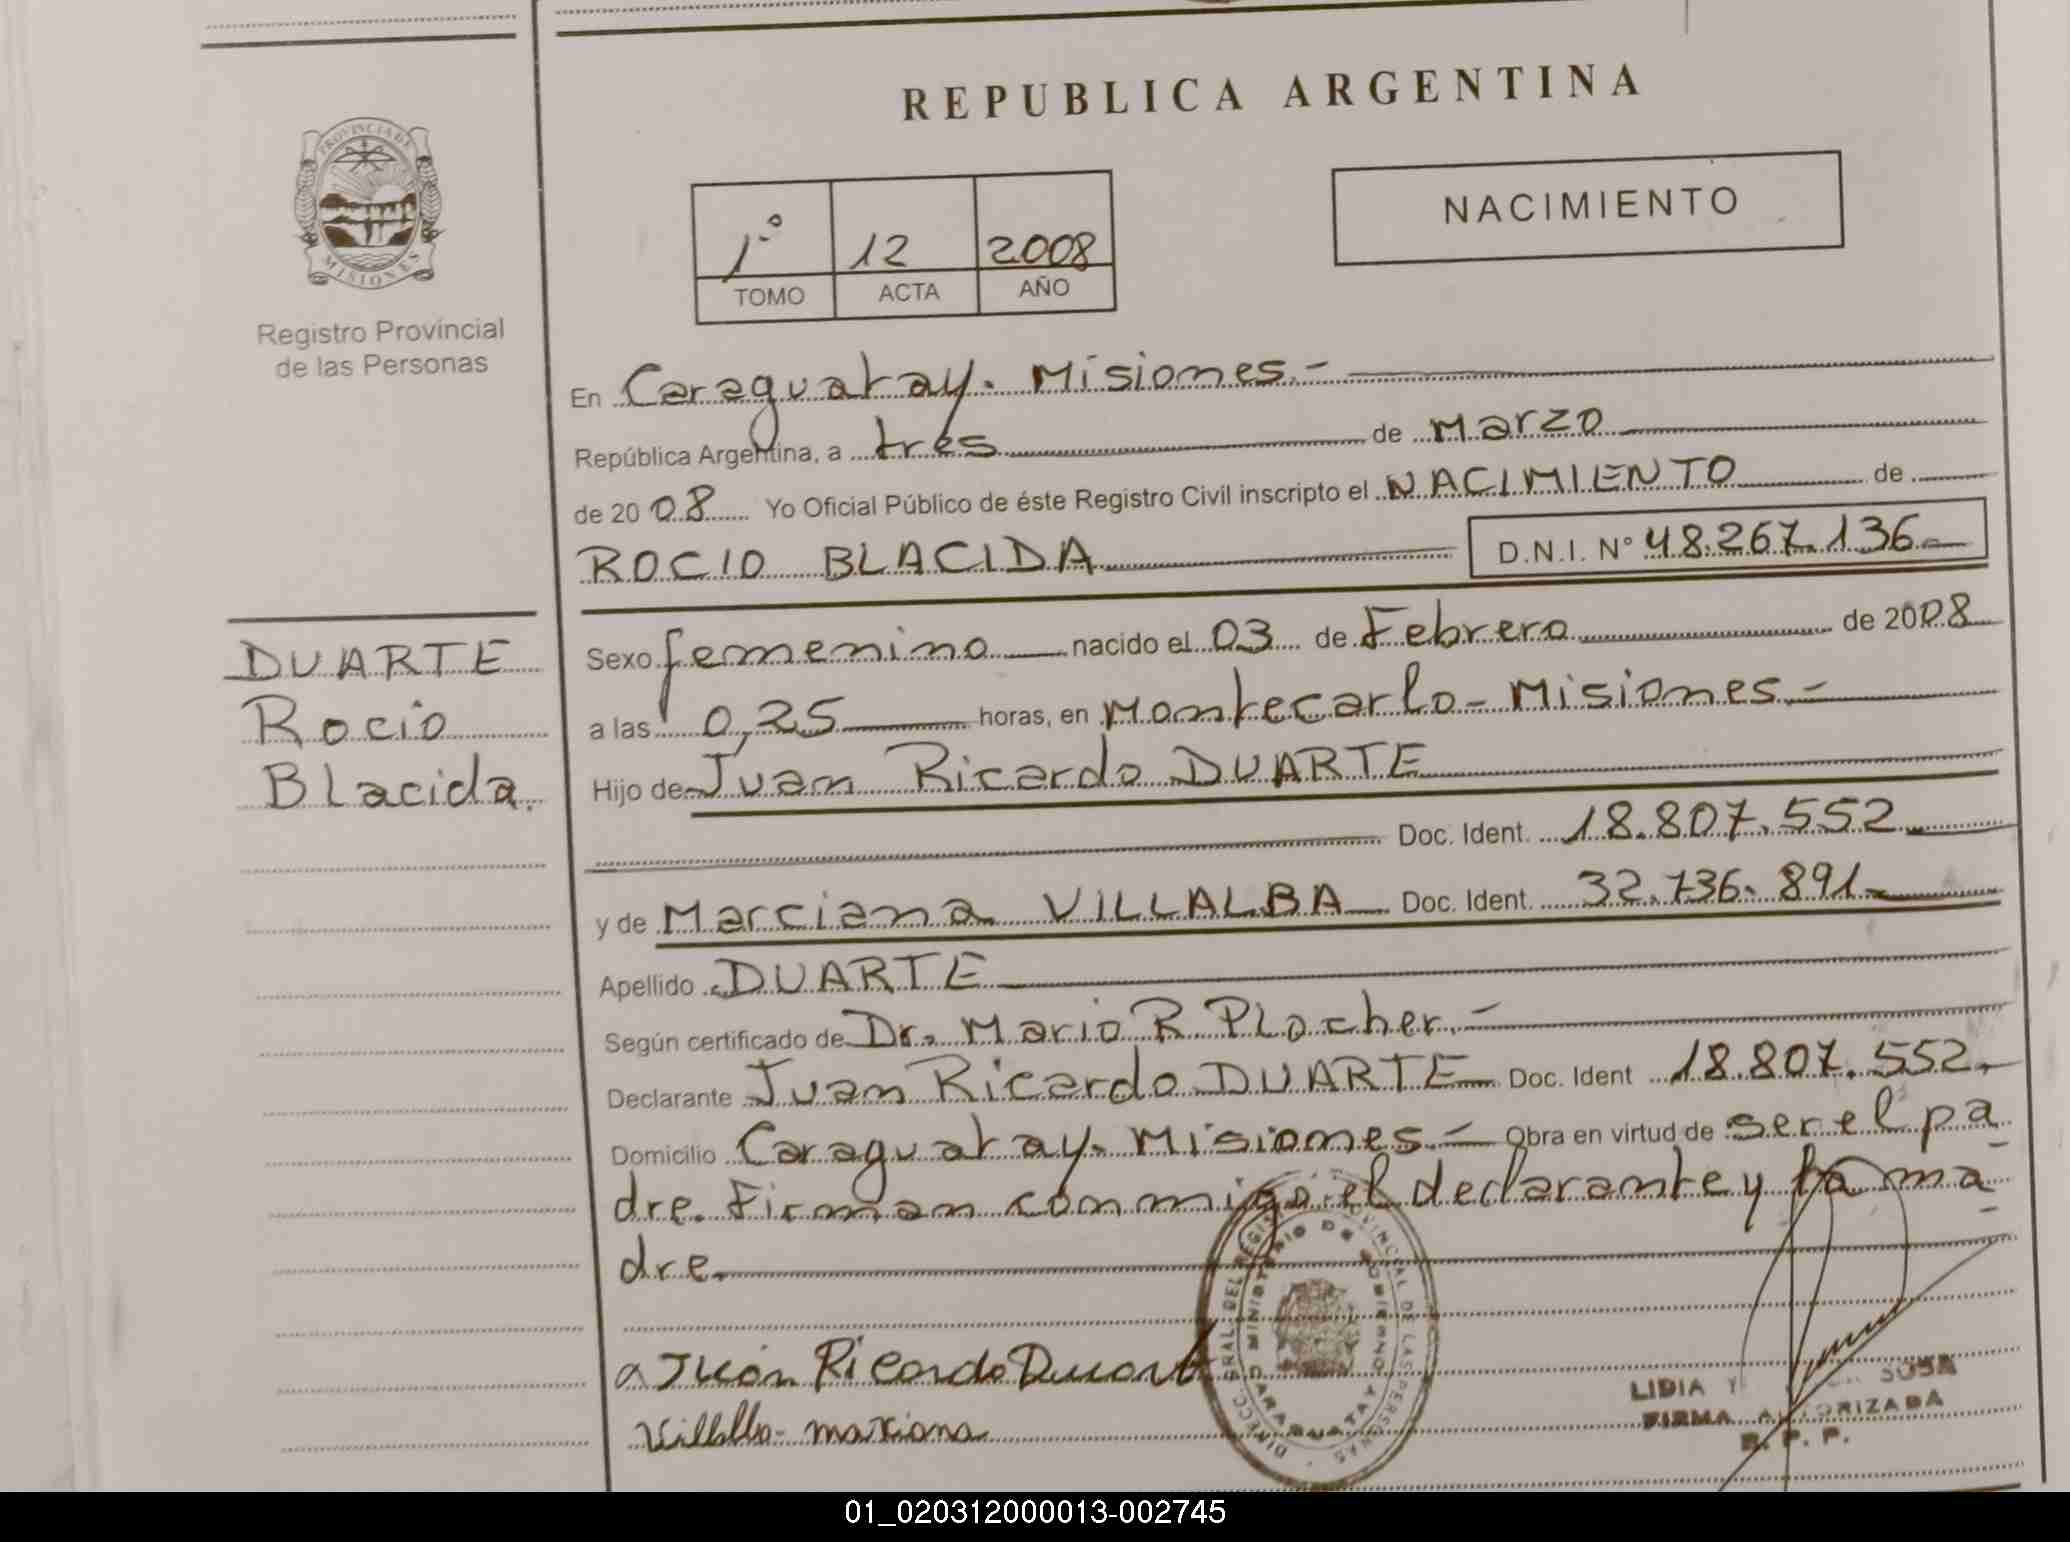 REPUBLICA ARGENTINA
PROVINCIA DE
MISIONES
Registro Provincial
de las Personas
NACIMIENTO
1º 12 2008
TOMO ACTA AÑO
En Caraguatay. Misiones.-
República Argentina, a tres de Marzo
de 2008 Yo Oficial Público de éste Registro Civil inscripto el NACIMIENTO de
ROCIO BLACIDA D.N.I. Nº 48.267.136-
DUARTE
Rocio
Blacida.
Sexo femenino nacido el 03 de Febrero de 2008
a las 0,25 horas, en Montecarlo - Misiones.-
Hijo de Juan Ricardo DUARTE
Doc. Ident. 18.807.552
y de Marciana VILLALBA Doc. Ident. 32.736.891-
Apellido DUARTE
Según certificado de Dr. Mario R Plocher.-
Declarante Juan Ricardo DUARTE Doc. Ident 18.807.552.
Domicilio Caraguatay. Misiones.- Obra en virtud de ser el pa
dre. Firman conmigo el declarante y la ma-
dre.
Juan Ricardo Duarte
LIDIA SOSA
FIRMA AUTORIZADA
R. P. P.
01_020312000013-002745